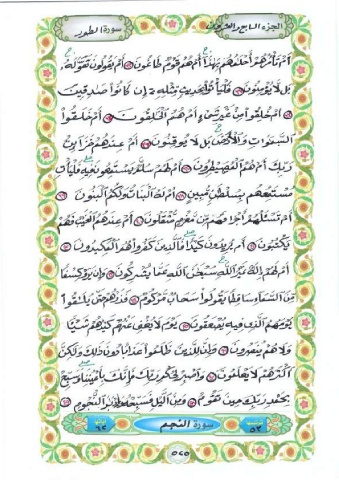 الجزء السابع والعشرون
سورة الطور
أَمْ تَأْمُرُهُمْ أَحْلَامُهُمْ بِهَٰذَا أَمْ هُمْ قَوْمٌ طَاغُونَ ۝ أَمْ يَقُولُونَ تَقَوَّلَهُ
بَل لَّا يُؤْمِنُونَ ۝ فَلْيَأْتُوا بِحَدِيثٍ مِّثْلِهِ إِن كَانُوا صَادِقِينَ
۝ أَمْ خُلِقُوا مِنْ غَيْرِ شَيْءٍ أَمْ هُمُ الْخَالِقُونَ ۝ أَمْ خَلَقُوا
السَّمَاوَاتِ وَالْأَرْضَ بَل لَّا يُوقِنُونَ ۝ أَمْ عِندَهُمْ خَزَائِنُ
رَبِّكَ أَمْ هُمُ الْمُصَيْطِرُونَ ۝ أَمْ لَهُمْ سُلَّمٌ يَسْتَمِعُونَ فِيهِ فَلْيَأْتِ
مُسْتَمِعُهُم بِسُلْطَانٍ مُّبِينٍ ۝ أَمْ لَهُ الْبَنَاتُ وَلَكُمُ الْبَنُونَ ۝
أَمْ تَسْأَلُهُمْ أَجْرًا فَهُم مِّن مَّغْرَمٍ مُّثْقَلُونَ ۝ أَمْ عِندَهُمُ الْغَيْبُ فَهُمْ
يَكْتُبُونَ ۝ أَمْ يُرِيدُونَ كَيْدًا فَالَّذِينَ كَفَرُوا هُمُ الْمَكِيدُونَ ۝
أَمْ لَهُمْ إِلَٰهٌ غَيْرُ اللَّهِ سُبْحَانَ اللَّهِ عَمَّا يُشْرِكُونَ ۝ وَإِن يَرَوْا كِسْفًا
مِّنَ السَّمَاءِ سَاقِطًا يَقُولُوا سَحَابٌ مَّرْكُومٌ ۝ فَذَرْهُمْ حَتَّىٰ يُلَاقُوا
يَوْمَهُمُ الَّذِي فِيهِ يُصْعَقُونَ ۝ يَوْمَ لَا يُغْنِي عَنْهُمْ كَيْدُهُمْ شَيْئًا
وَلَا هُمْ يُنصَرُونَ ۝ وَإِنَّ لِلَّذِينَ ظَلَمُوا عَذَابًا دُونَ ذَٰلِكَ وَلَٰكِنَّ
أَكْثَرَهُمْ لَا يَعْلَمُونَ ۝ وَاصْبِرْ لِحُكْمِ رَبِّكَ فَإِنَّكَ بِأَعْيُنِنَا وَسَبِّحْ
بِحَمْدِ رَبِّكَ حِينَ تَقُومُ ۝ وَمِنَ اللَّيْلِ فَسَبِّحْهُ وَإِدْبَارَ النُّجُومِ ۝
٥٣ سورة النجم ٦٢
٥٢٥